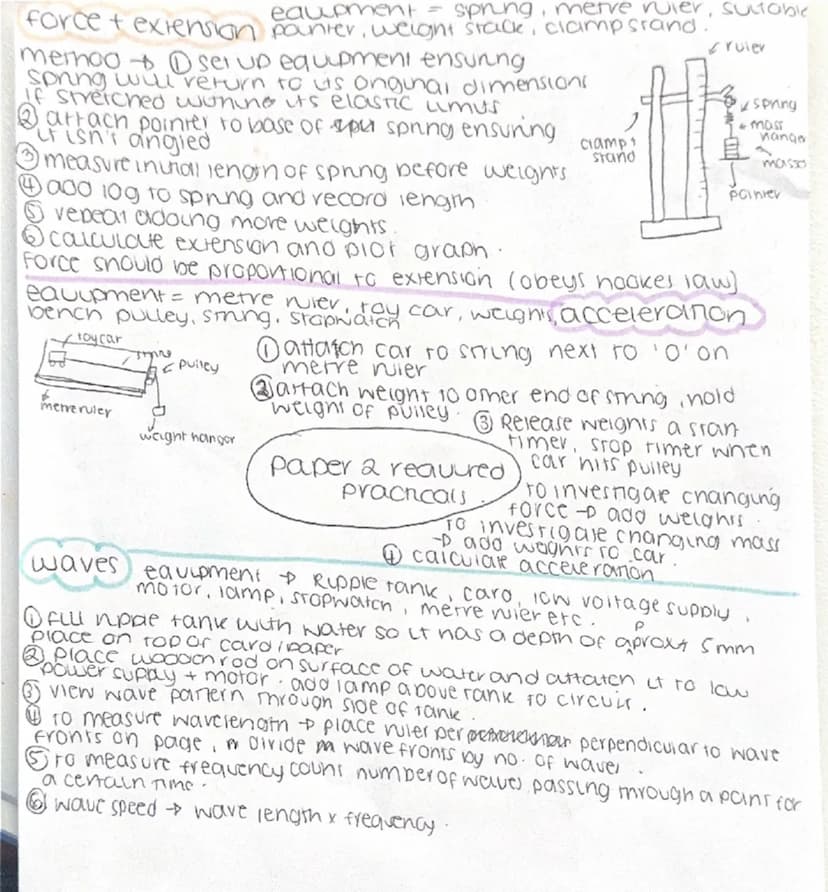 force + extension
equipment = spring, metre ruler, suitable
pointer, weight stack, clamp stand.
method → ① set up equipment ensuring
spring will return to its original dimensions
if stretched within its elastic limits
② attach pointer to base of spring ensuring
it isn't angled
③ measure initial length of spring before weights
④ add 10g to spring and record length
⑤ repeat adding more weights.
⑥ calculate extension and plot graph.
force should be proportional to extension (obeys hookes law)
ruler
spring
mass
hanger
masses
pointer
clamp
stand
equipment = metre ruler, toy car, weights,
bench pulley, string, stopwatch
acceleration
toy car
string
pulley
metre ruler
weight hanger
① attatch car to string next to '0' on
metre ruler
② attach weight to other end of string, hold
weight of pulley.
③ Release weights a start
timer, stop timer when
car hits pulley
to investigate changing
force → add weights.
to investigate changing mass
→ add weights to car.
④ calculate acceleration
paper 2 required
practicals.
waves
equipment → Ripple tank, card, low voltage supply,
motor, lamp, stopwatch, metre ruler etc.
① fill ripple tank with water so it has a depth of aprox 5mm
place on top of card/paper
② place wooden rod on surface of water and attatch it to low
power supply + motor. add lamp above tank to circuit.
③ view wave pattern through side of tank.
④ to measure wavelength → place ruler perpendicular to wave
fronts on page, divide wave fronts by no. of waves.
⑤ to measure frequency count number of waves passing through a point for
a certain time.
⑥ wave speed → wave length x frequency.